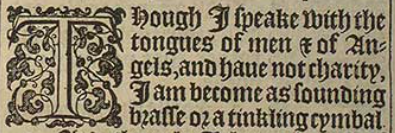 Though I speake with the
tongues of men & of An-
gels, and haue not charity,
I am become as sounding
brasse or a tinkling cymbal.